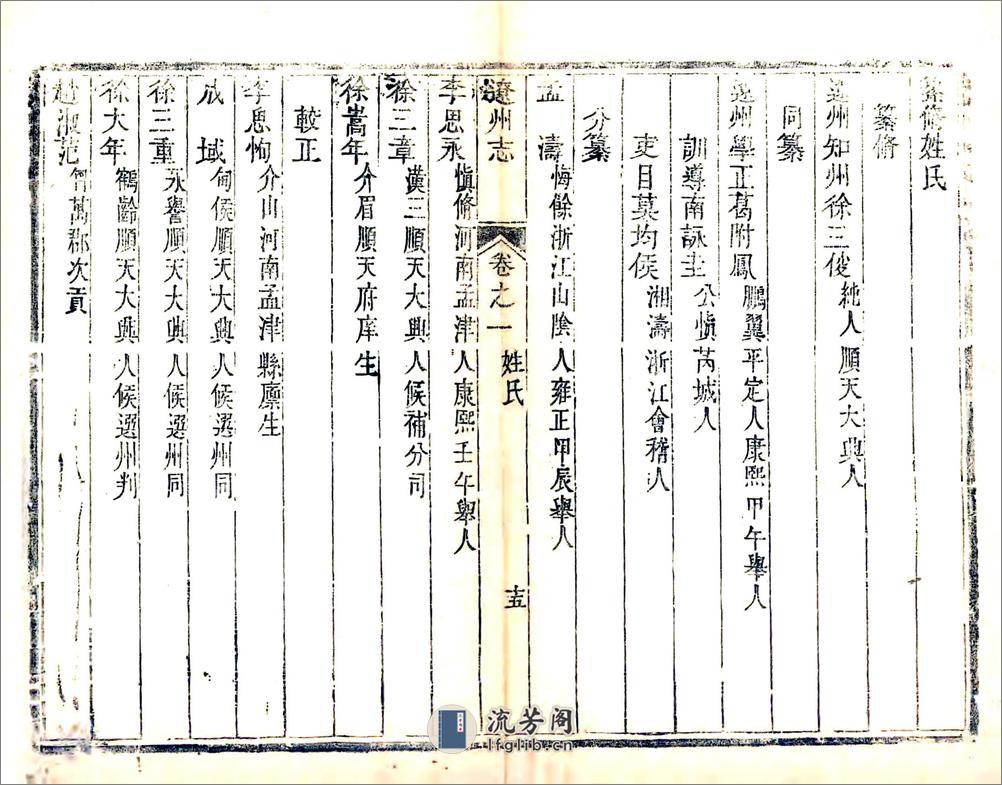 纂脩姓氏
纂脩
遼州知州徐三俊 純人順天大興人
同纂
遼州學正葛附鳳 鵬翼平定人康熙甲午舉人
訓導南詠圭 公愼芮城人
吏目莫均侯 湘濤浙江會稽人
分纂
孟濤 悔餘浙江山陰人雍正甲辰舉人
遼州志 卷之一 姓氏 十五
李思永 愼脩河南孟津人康熙壬午舉人
徐三章 漢三順天大興人候補分司
徐嵩年 介眉順天府庠生
較正
李思恂 介山河南孟津縣廪生
成域 甸侯順天大興人候選州同
徐三重 永譽順天大興人候選州同
徐大年 鶴齡順天大興人候選州判
趙淑范 郡次貢
流芳阁
lfglib.cn